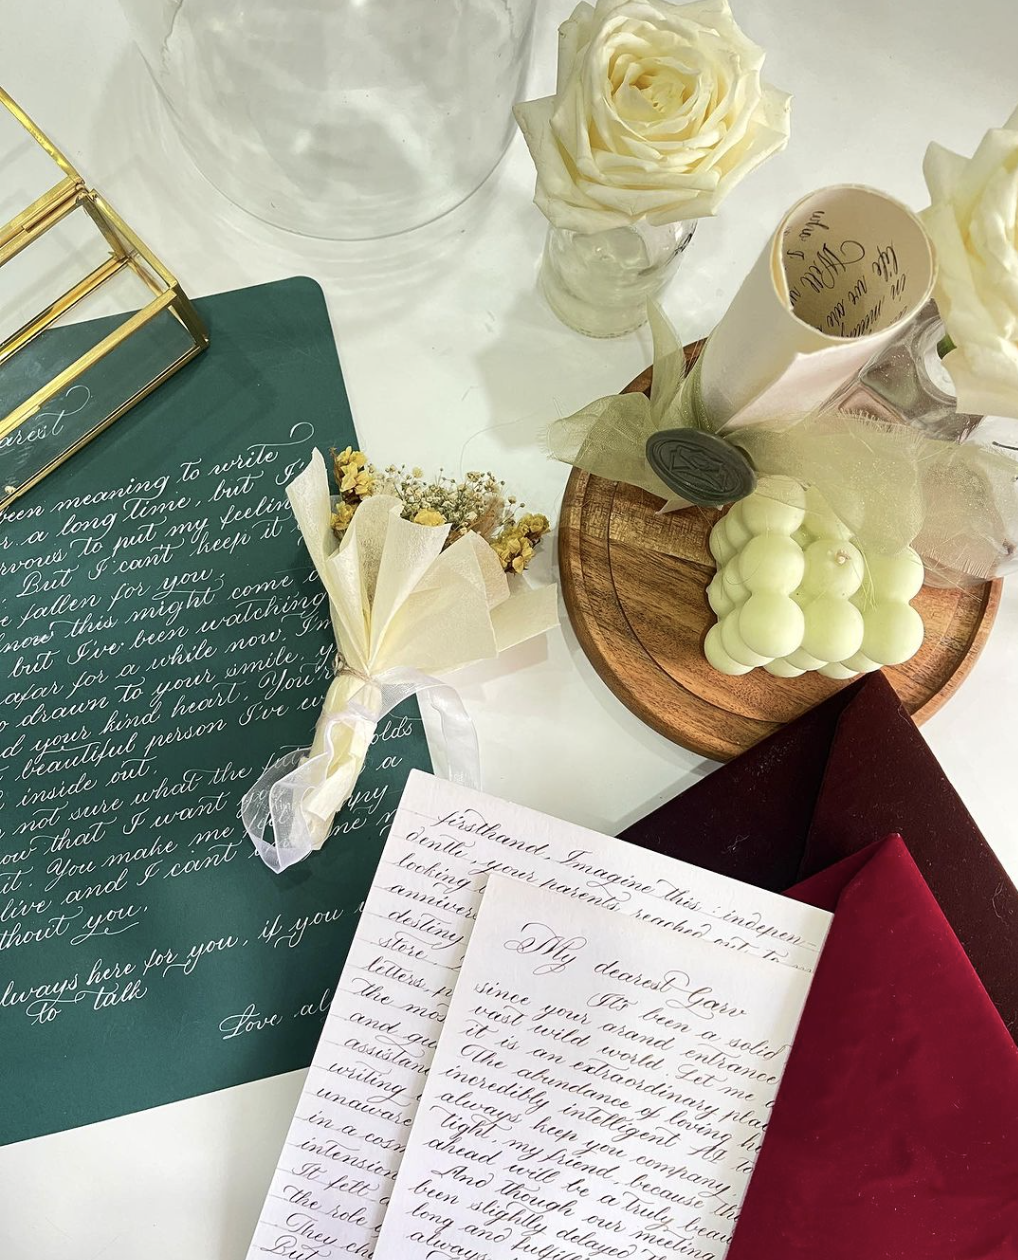 arest
een meaning to write
r a long time, but I'
rvous to put my feelin
But I can't keep it
e fallen for you
now this might come
but I've been watching
afar for a while now. I'm
o drawn to your smile, y
d your kind heart. You'r
beautiful person I've
inside out.
not sure what the fu olds
ow that I want a
it. You make me ppy
live and I can't me
thout you.
lways here for you, if you
to talk
Love al
who
Will
life we are
in mean
firsthand. Imagine this : indepen-
dently, your parents reached out to
looking
anniver
destiny
store
letters,
the mos
and au
assistan
writing
unaware
in a cosm
intension
It felt
the role
They
But
My dearest Garv
It's been a solid
since your grand entrance
vast wild world Let me
it is an extraordinary plac
The abundance of loving h
incredibly intelligent
always keep you company.
tight, my friend, because th
ahead will be a truly beau
And though our meeting
been slightly delayed
long and
always